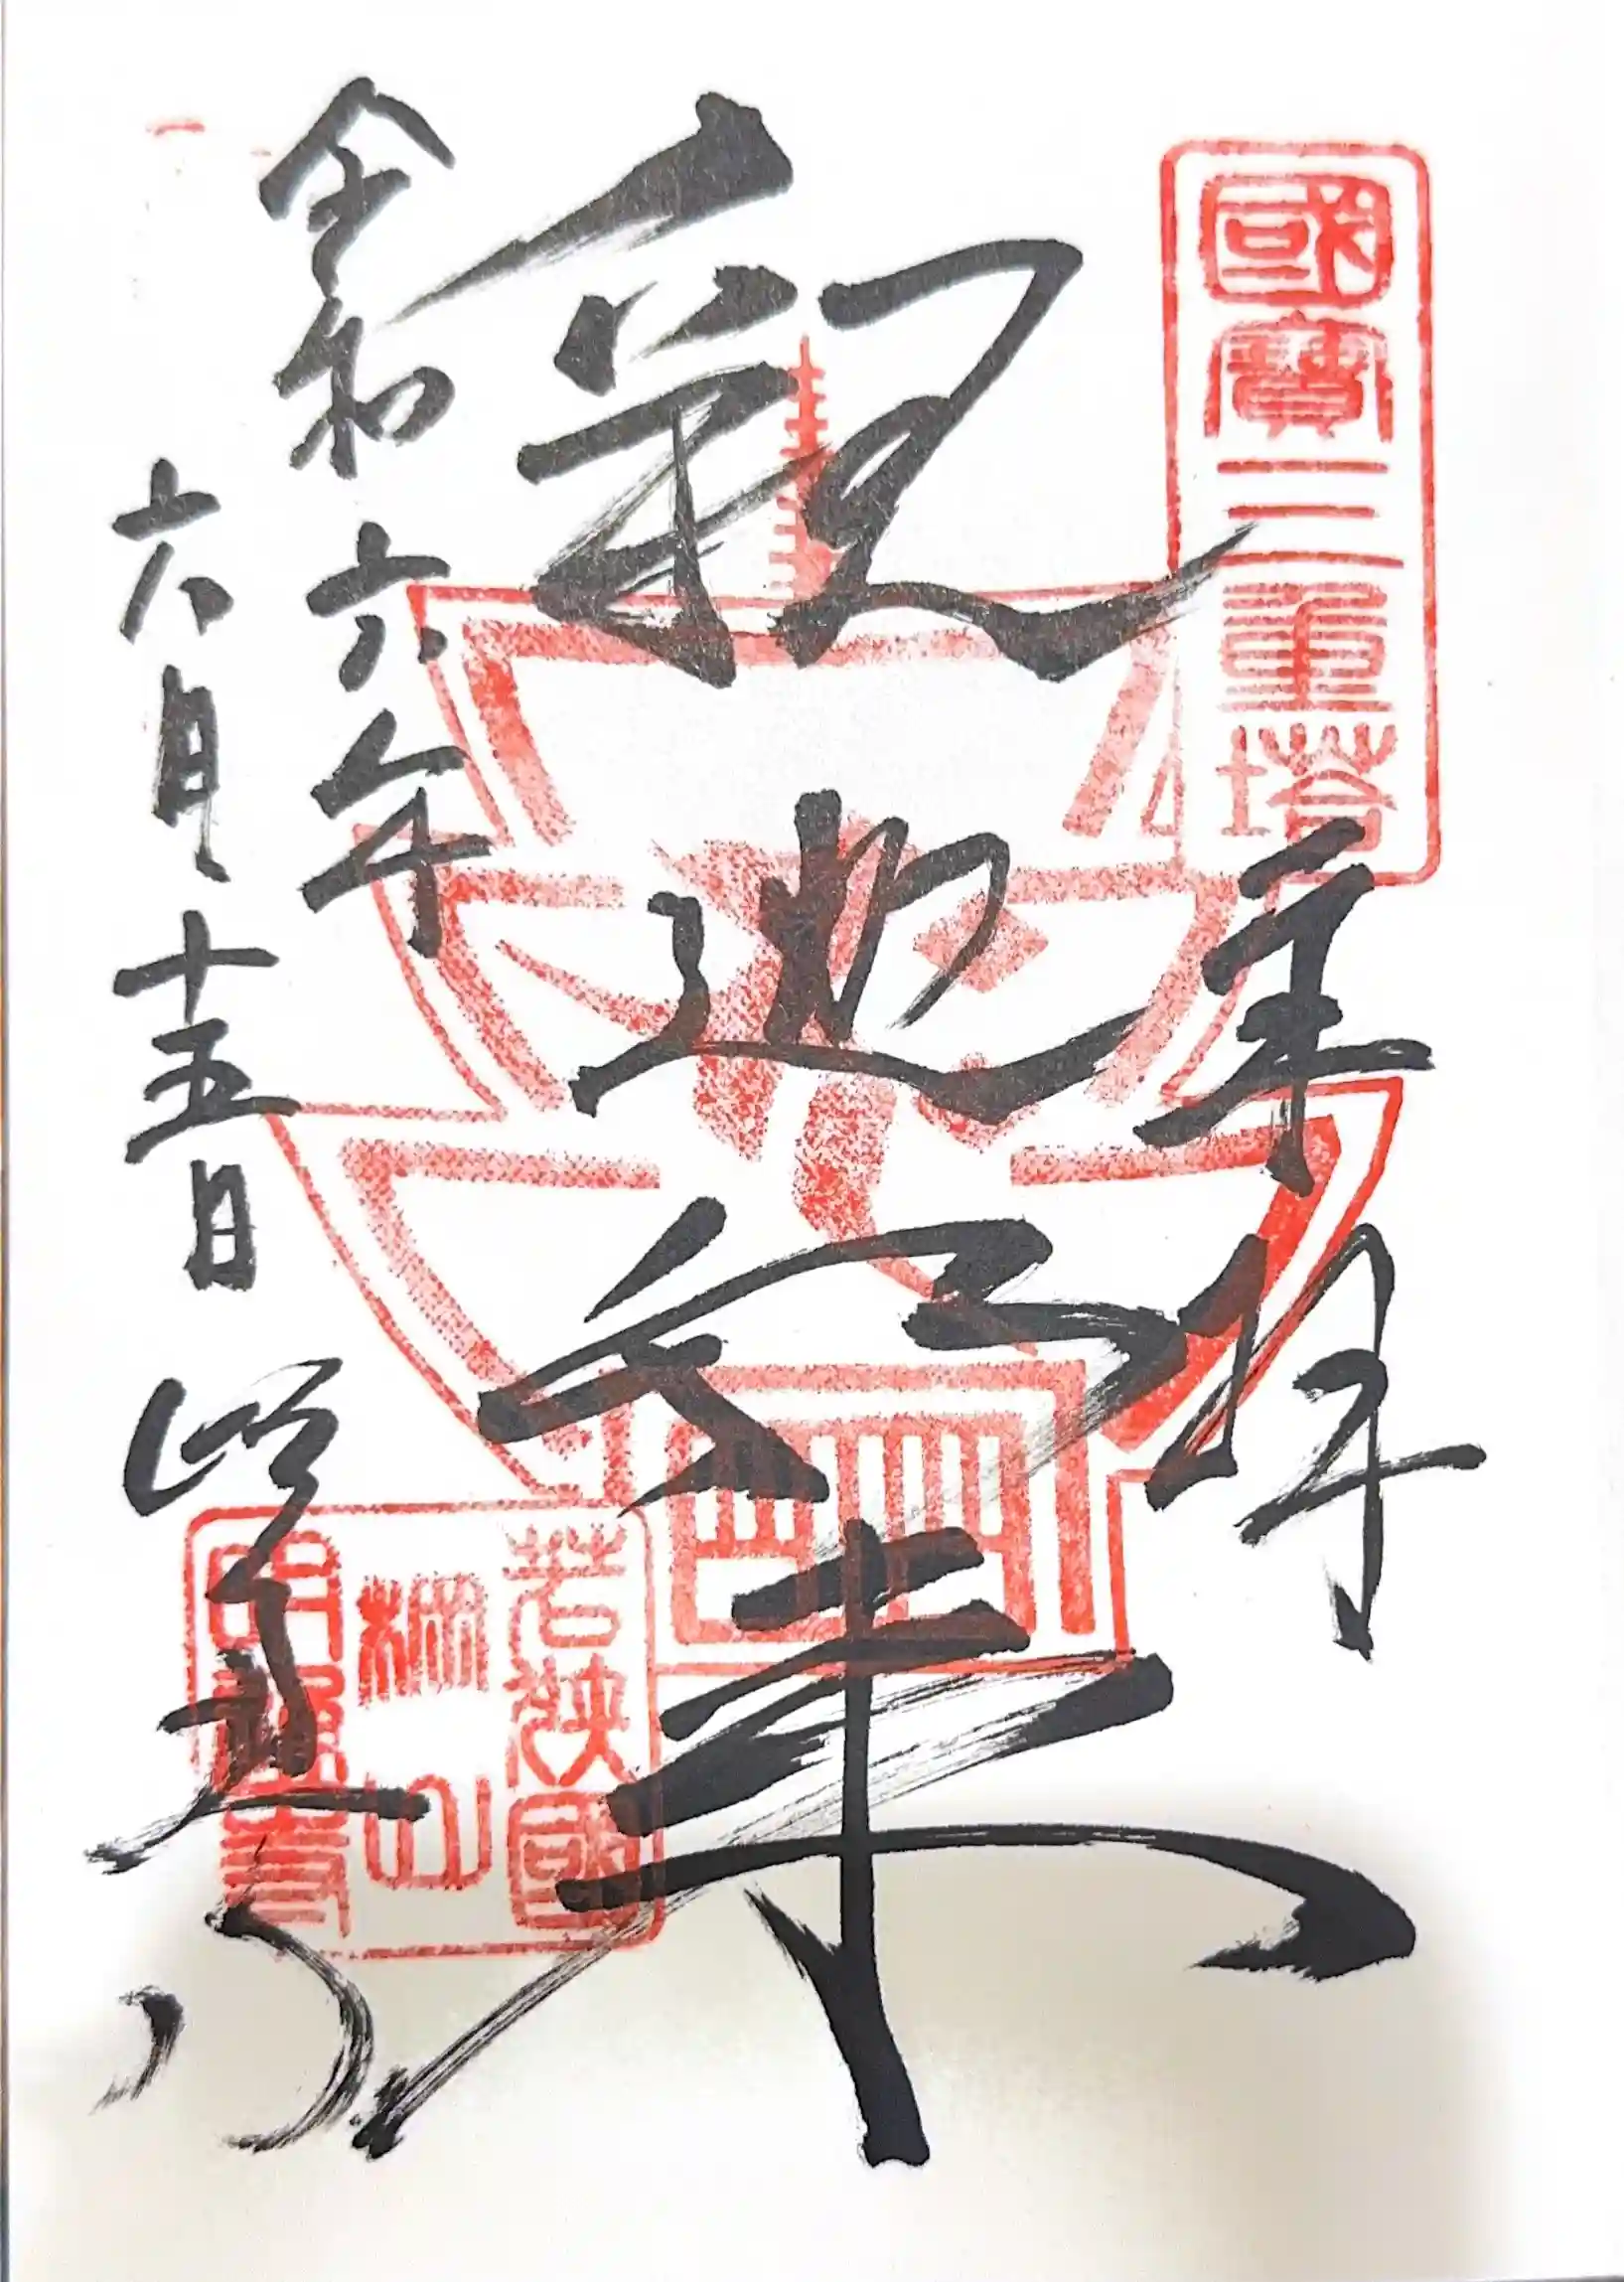 國寶三重塔
奉拝
釈迦如来
令和六年
六月十五日
明通寺
若狭國
棡山
明通寺